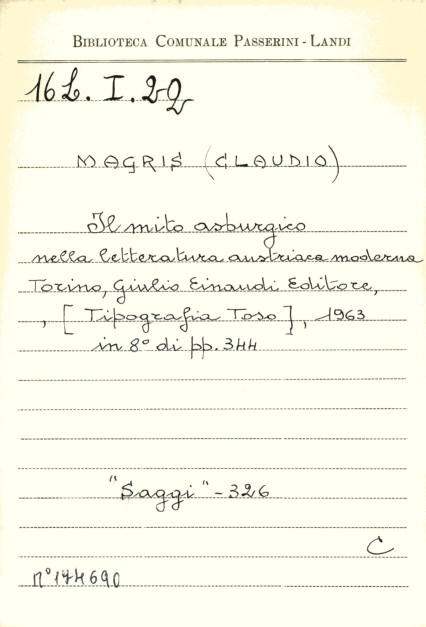 BIBLIOTECA COMUNALE PASSERINI - LANDI
16 L. I. 22
MAGRIS (CLAUDIO)
Il mito asburgico
nella letteratura austriaca moderna
Torino, Giulio Einaudi Editore,
, [Tipografia Toso], 1963
in 8° di pp. 344
"Saggi" - 326
C
n° 174690